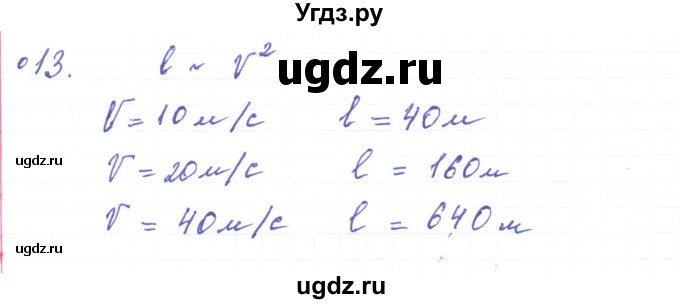 Угдз.ру
013. l ~ V²
ugdz.ru
V = 10 м/с l = 40 м
ugdz.ru
V = 20 м/с l = 160 м
V = 40 м/с l = 640 м
ugdz.ru
ugdz.ru